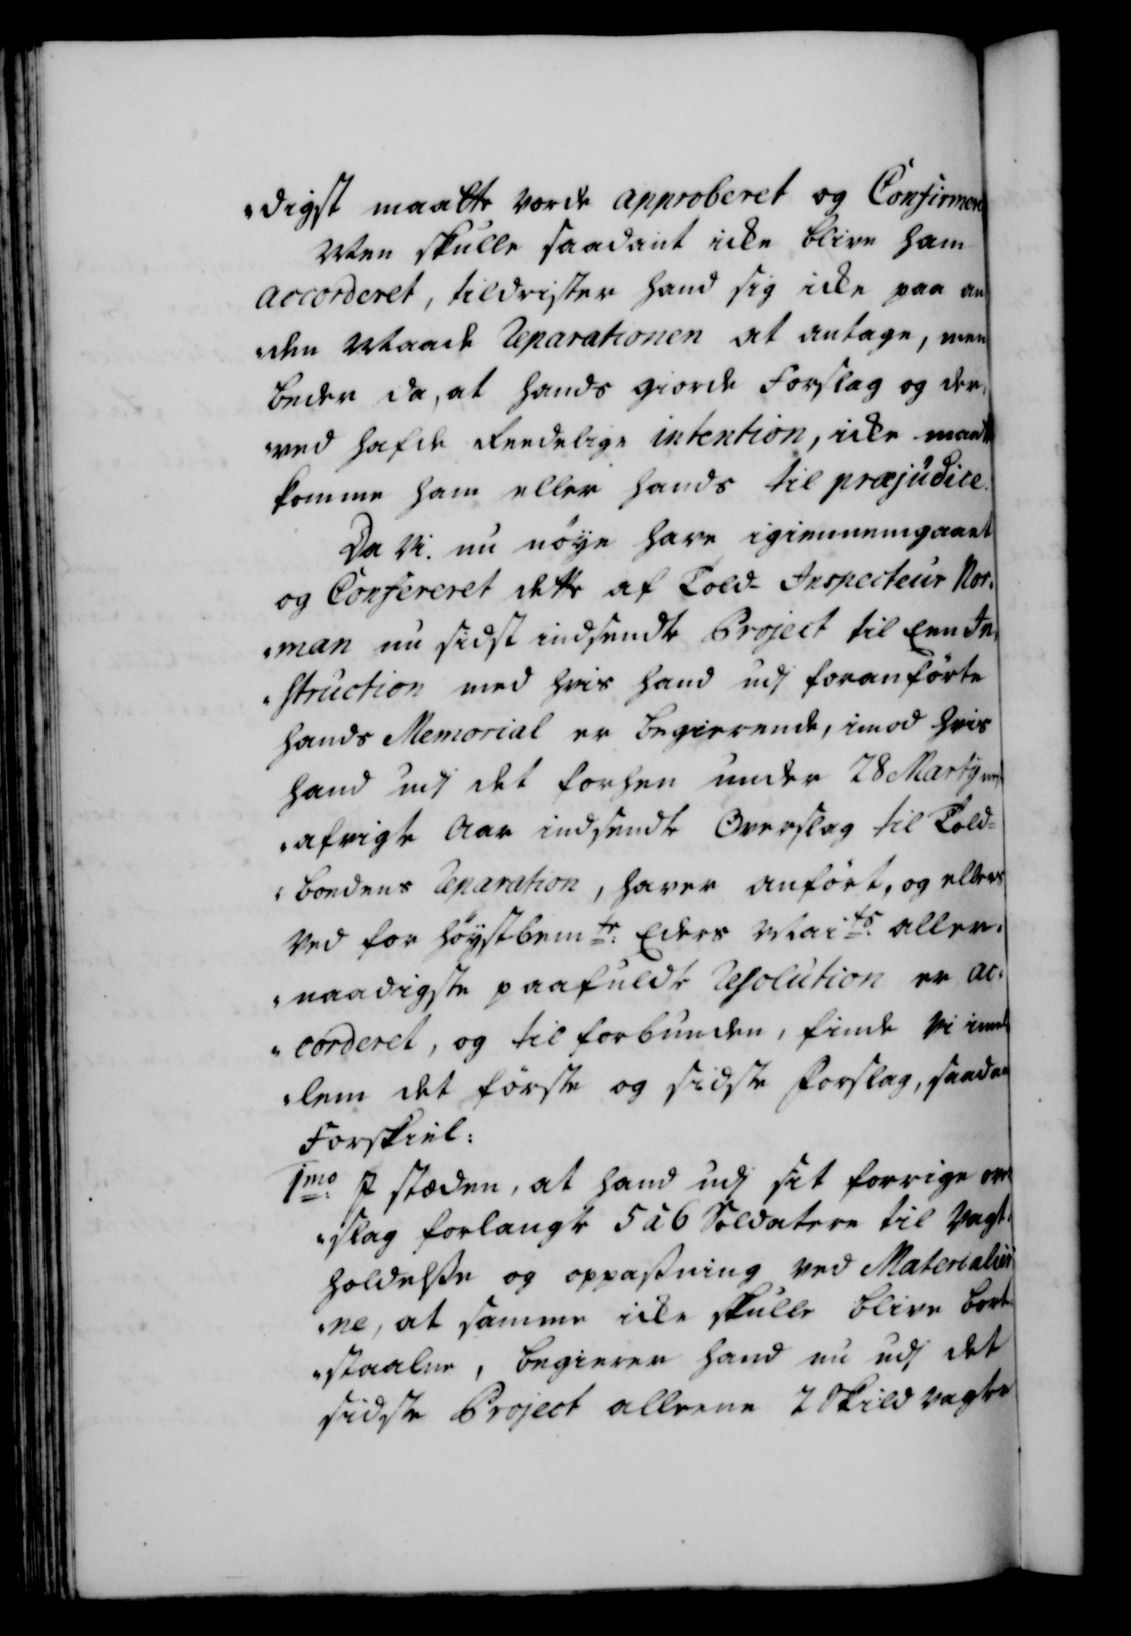 "digst maatte vorde approberet og Confirmeret
Men skulle saadant icke blive ham
accorderet, tildrister hand sig icke paa an-
"den Maade Reparationen at antage, men
beder da, at hands giorde Forslag og der,
"ved hafde Reedelige intention, icke maatte
komme ham eller hands til præjudice.
Da Vi nu nøye have igiennemgaaet
og Confereret dette af Told- Inspecteur Nor-
"man nu sidst indsendte Project til Een In-
"struction med hvis hand udj foranførte
hands Memorial er begierende, imod hvis
hand udj det forhen under 28 Martij
"afvigte Aar indsendte Overslag til Told-
"boedens Reparation, haver anført, og ellers
ved for høystbemte: Eders Maits: aller-
"naadigste paafuldte Resolution er ac-
"corderet, og til forbunden, finde Vi imel-
"lem det første og sidste Forslag, saadan
Forskiel:
1mo: I stæden, at hand udj sit forrige over
"slag forlangte 5 á 6 Soldatere til Vagt-
holdelse og oppasning ved Materialier
"ne, at samme icke skulle blive bort-
"staalne, begierer hand nu udj det
sidste Project alleene 2 Skildvagter